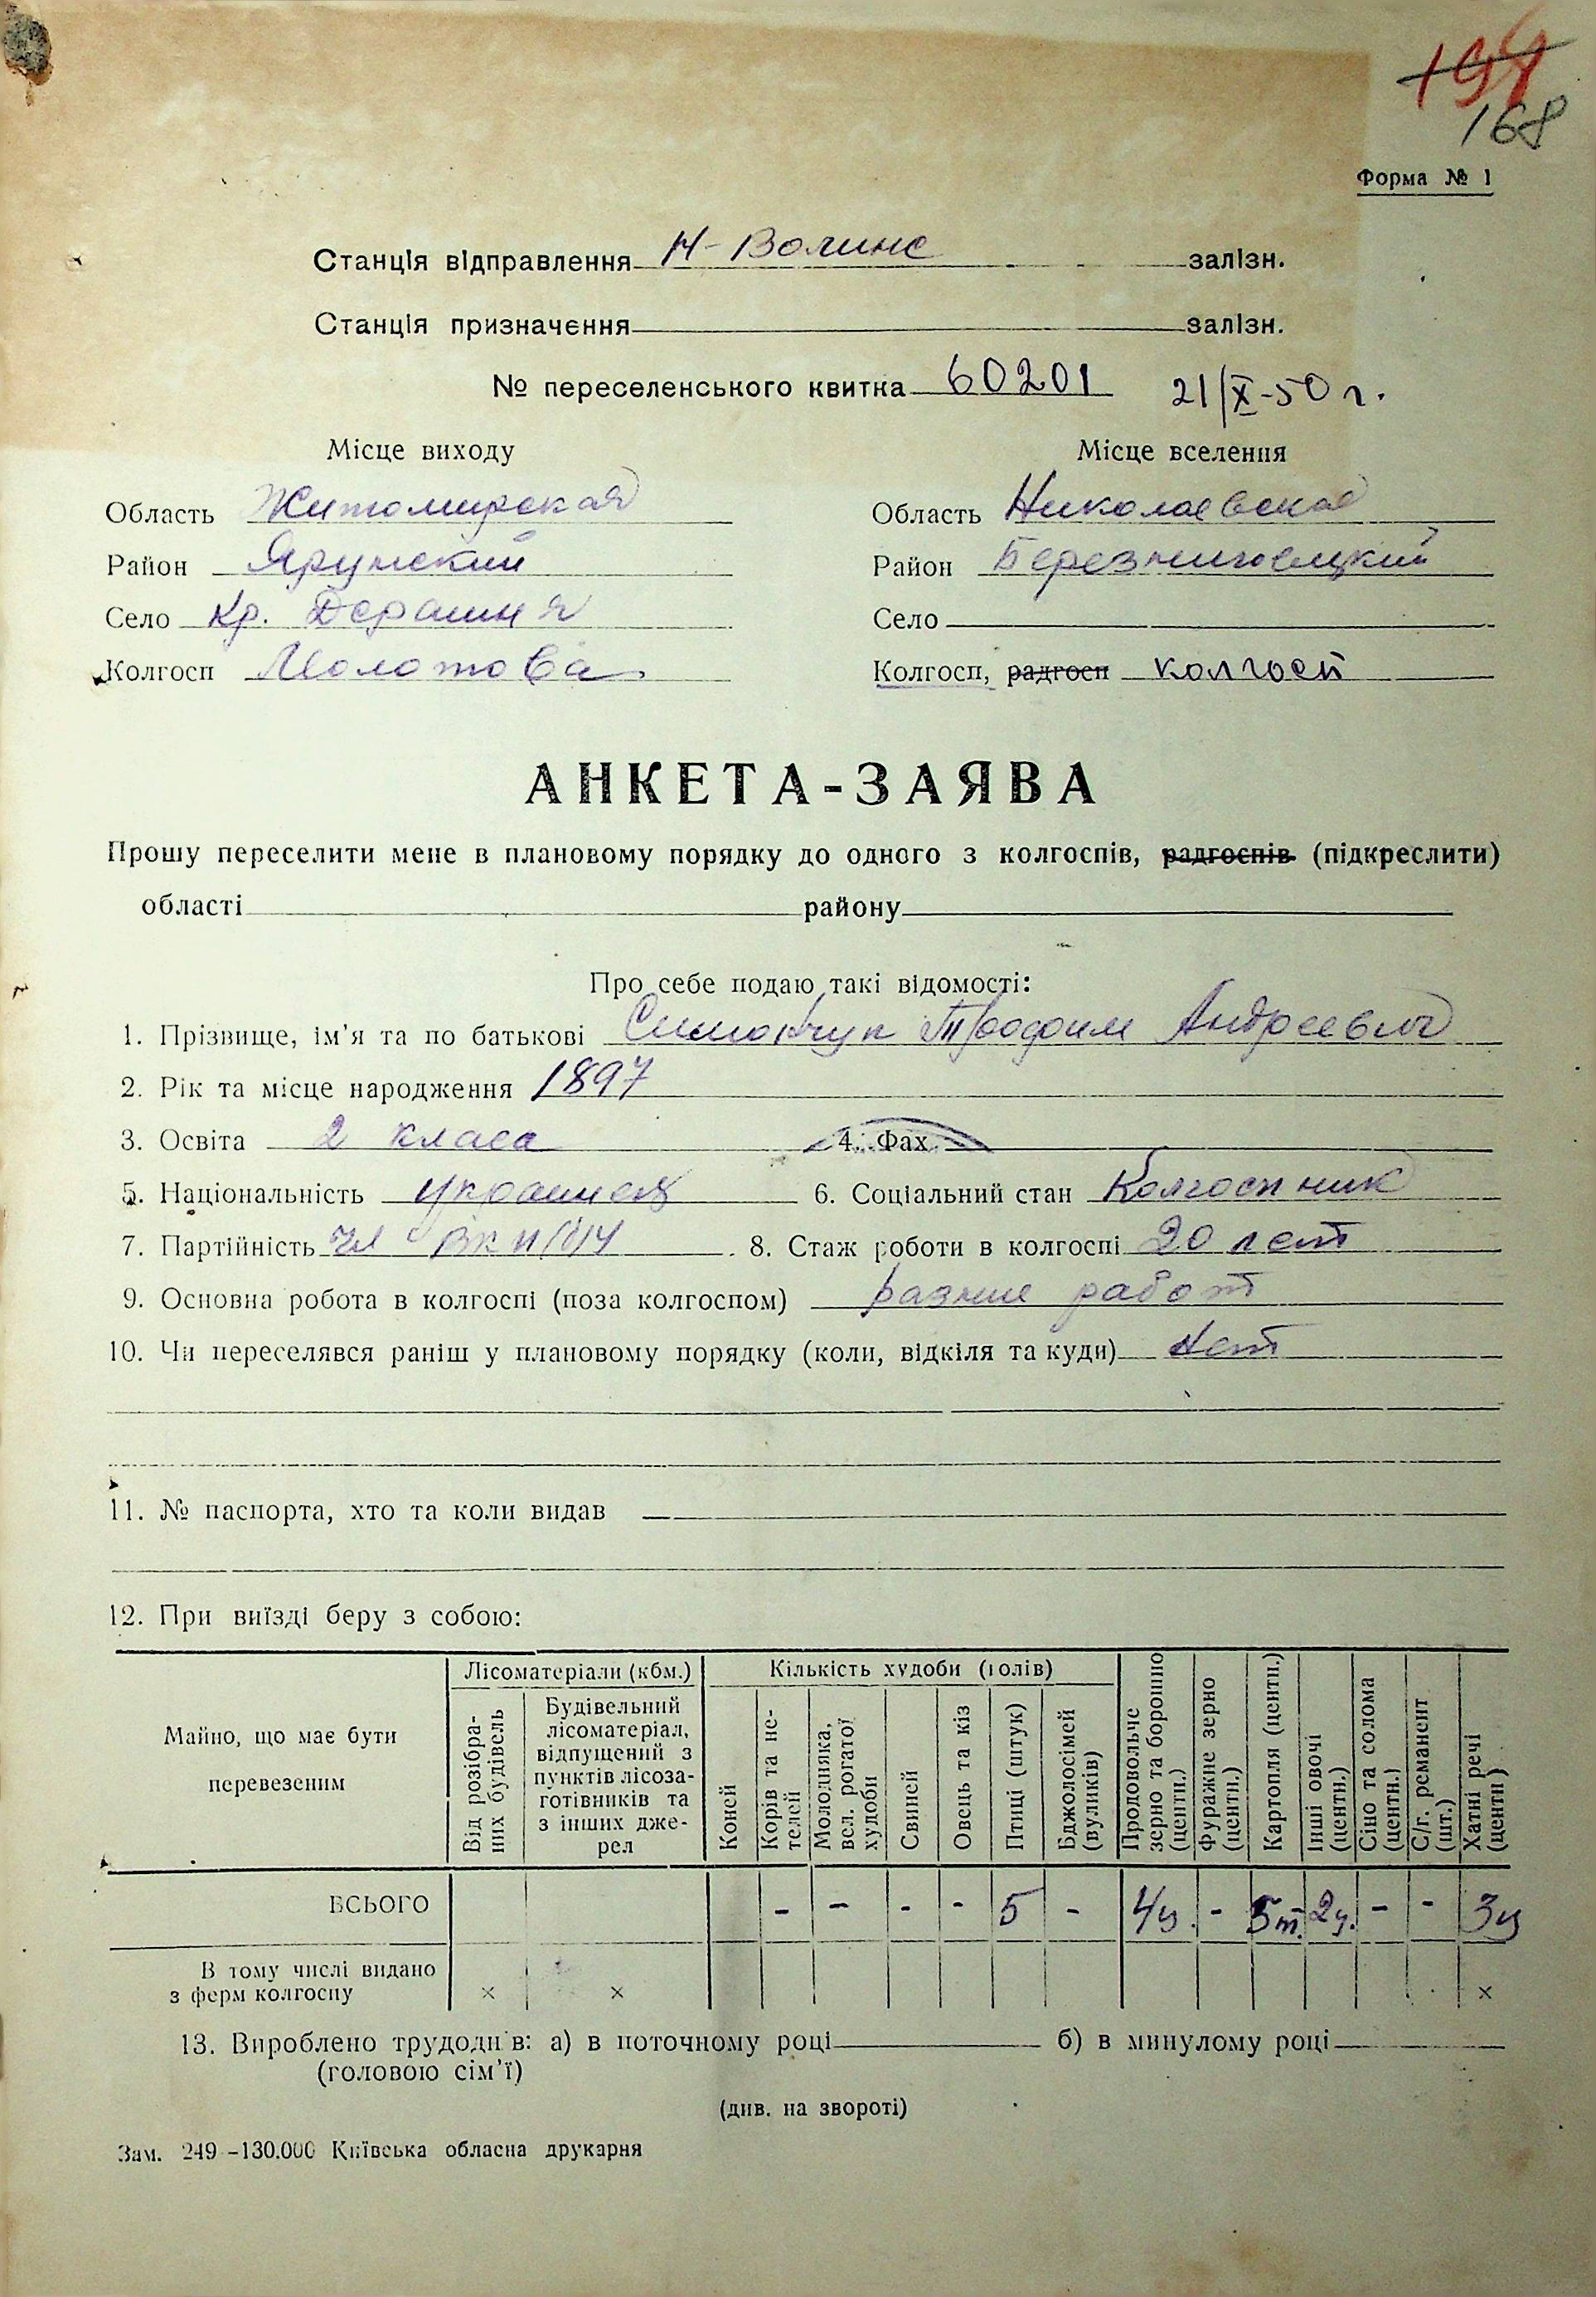 194
168
Форма № 1
Станція відправлення Н-Волинс залізн.
Станція призначення залізн.
№ переселенського квитка 60201 21/X-50 г.
Місце виходу Місце вселення
Область Житомирская Область Николаевская
Район Ярунский Район Березниговецкий
Село Кр. Дерашня Село
Колгосп Молотова Колгосп, радгосп колгосп
АНКЕТА-ЗАЯВА
Прошу переселити мене в плановому порядку до одного з колгоспів, радгоспів (підкреслити)
області району
Про себе подаю такі відомості:
1. Прізвище, ім'я та по батькові Симончук Трофим Андреевич
2. Рік та місце народження 1897
3. Освіта 2 класа 4. Фах
5. Національність украинец 6. Соціальний стан Колгоспник
7. Партійність чл ВКП(б)У 8. Стаж роботи в колгоспі 20 лет
9. Основна робота в колгоспі (поза колгоспом) разние работ
10. Чи переселявся раніш у плановому порядку (коли, відкіля та куди) Нет
11. № паспорта, хто та коли видав
12. При виїзді беру з собою:
Майно, що має бути перевезеним
Лісоматеріали (кбм.)
Від розібраних будівель
Будівельний лісоматеріал, відпущений з пунктів лісозаготівників та з інших джерел
Кількість худоби (голів)
Коней
Корів та нетелей
Молодняка, вел. рогатої худоби
Свиней
Овець та кіз
Птиці (штук)
Бджолосімей (вуликів)
Продовольче зерно та борошно (центн.)
Фуражне зерно (центн.)
Картопля (центн.)
Інші овочі (центн.)
Сіно та солома (центн.)
С/г. реманент (шт.)
Хатні речі (центн)
ВСЬОГО - - - - 5 - 4ц. - 5т. 2ц. - - 3ц
В тому числі видано з ферм колгоспу × × ×
13. Вироблено трудоднів: а) в поточному році б) в минулому році
(головою сім'ї)
(див. на звороті)
Зам. 249-130.000 Київська обласна друкарня